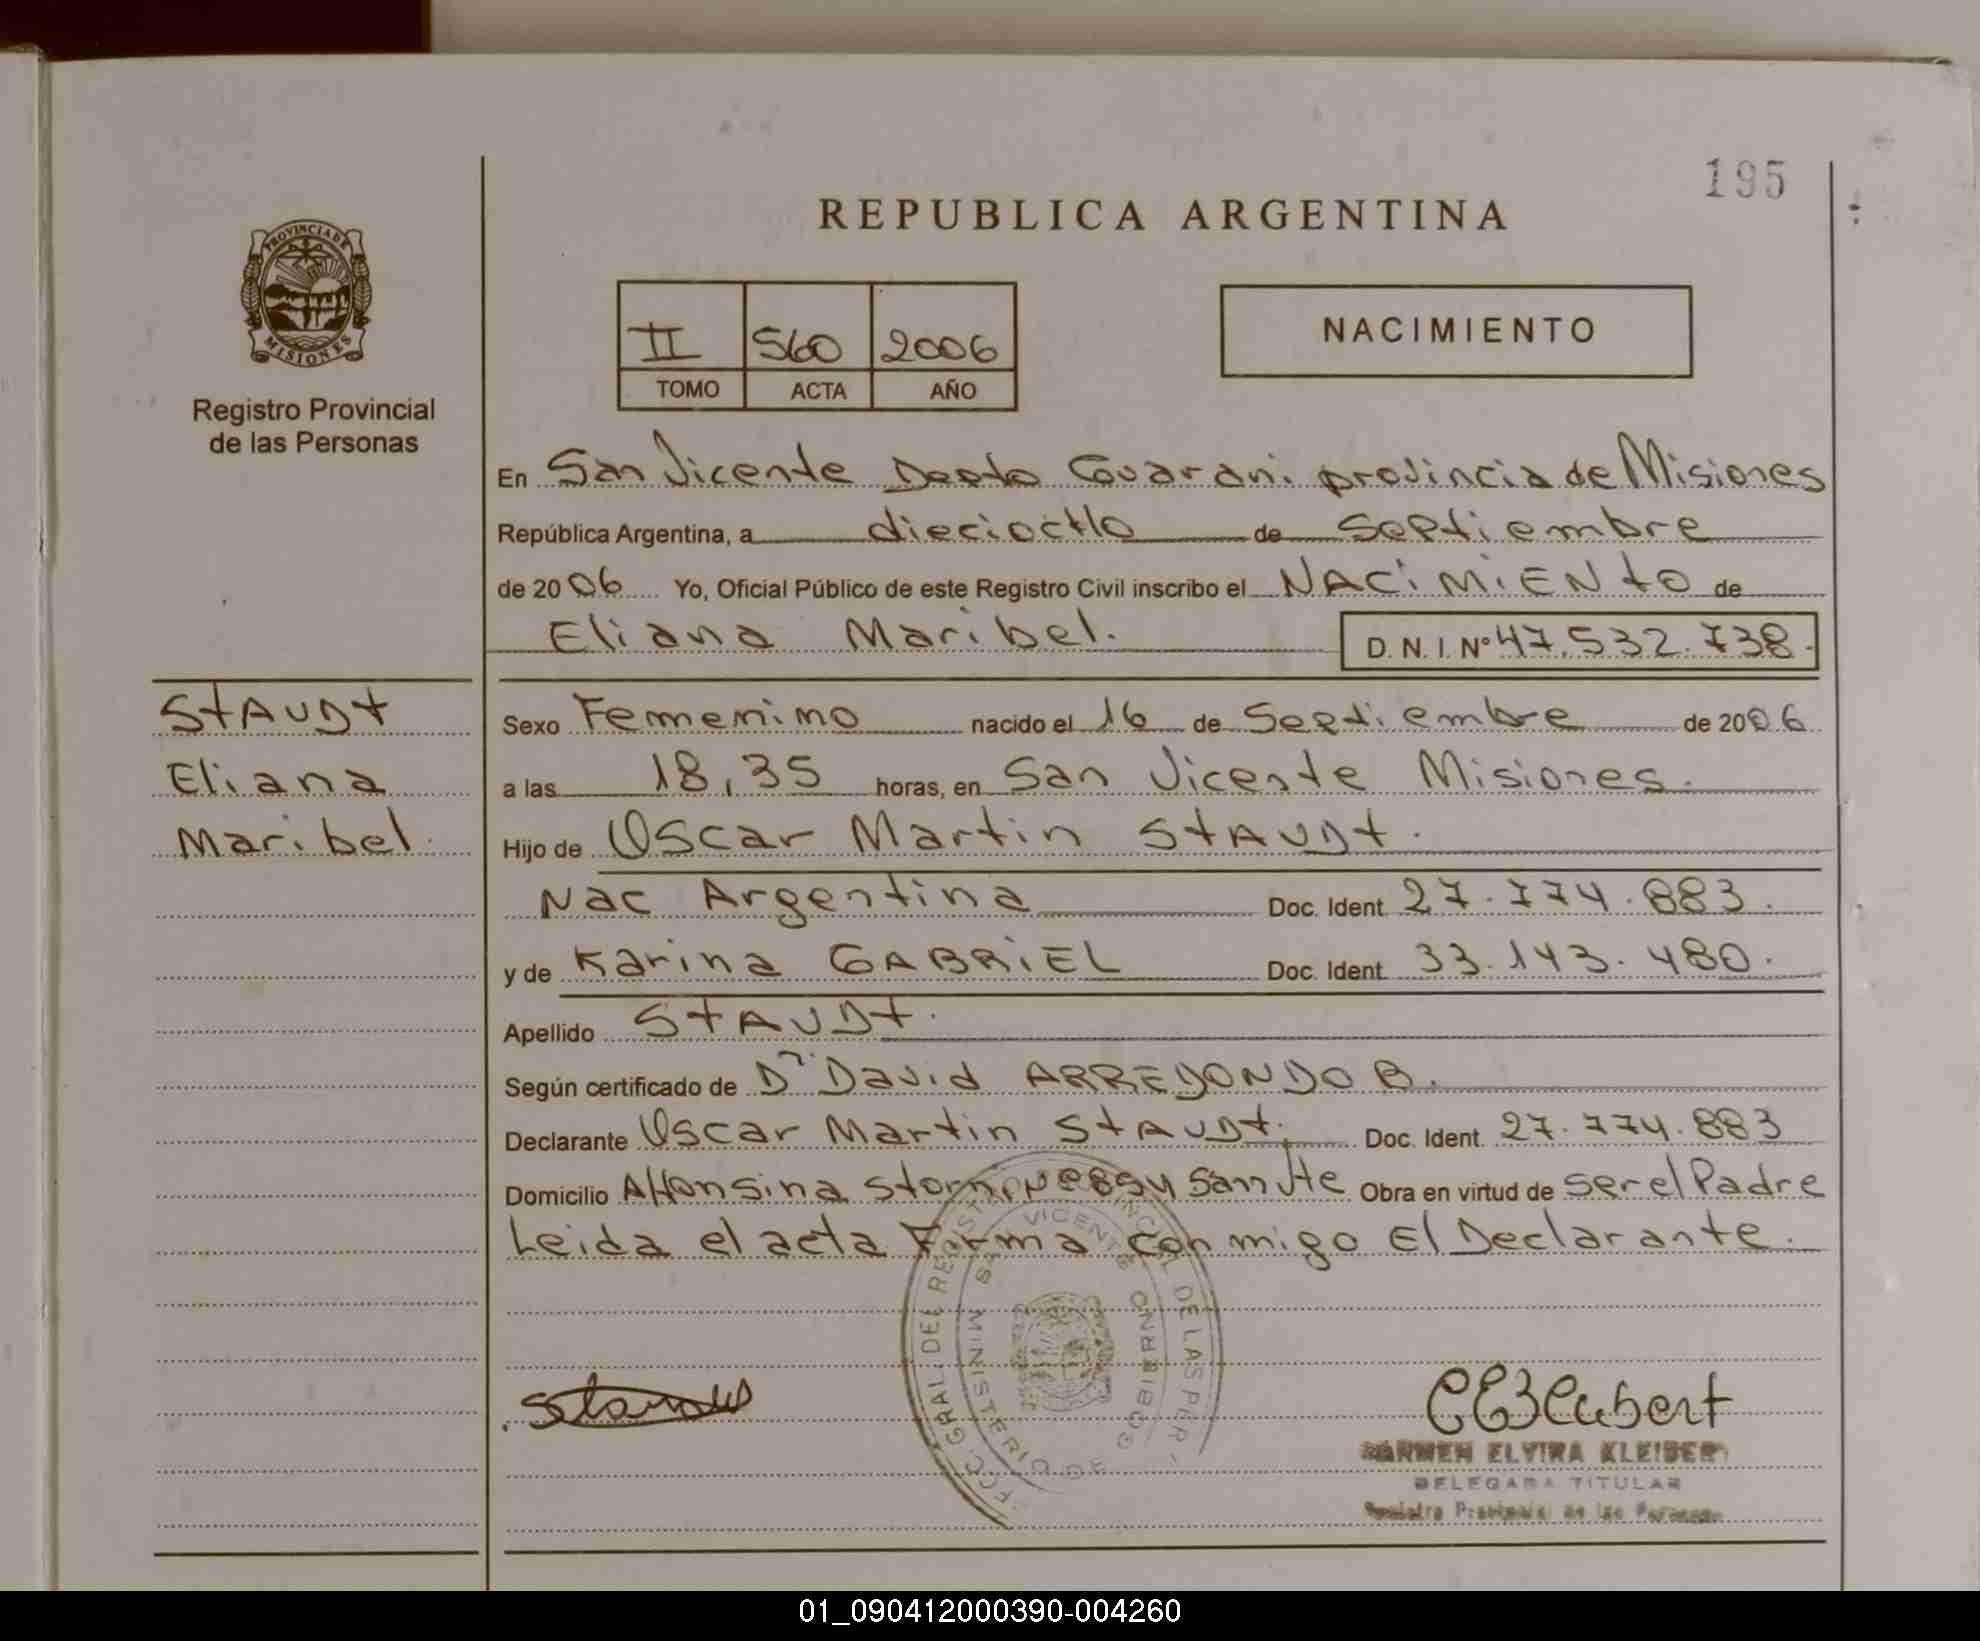 195
REPUBLICA ARGENTINA
PROVINCIA DE
MISIONES
Registro Provincial
de las Personas
II 560 2006
TOMO ACTA AÑO
NACIMIENTO
En San Vicente Depto Guarani provincia de Misiones
República Argentina, a diecioctho de Septiembre
de 2006 Yo, Oficial Público de este Registro Civil inscribo el NACIMIENTO de
Eliana Maribel. D.N.I. Nº 47.532.738.
STAUDT
Eliana
Maribel.
Sexo Femenino nacido el 16 de Septiembre de 2006
a las 18,35 horas, en San Vicente Misiones.
Hijo de Oscar Martin STAUDT.
Nac Argentina Doc. Ident 27.774.883.
y de Karina GABRIEL Doc. Ident 33.143.480.
Apellido STAUDT.
Según certificado de Dr David ARREDONDO B.
Declarante Oscar Martin STAUDT. Doc. Ident. 27.774.883
Domicilio Alfonsina Storni San Vte Obra en virtud de ser el Padre
Leida el acta Firma conmigo El Declarante.
GRAL. DEL REGIST. PROVINCIAL DE LAS PER
SAN VICENTE
MINISTERIO DE GOBIERNO
CARMEN ELVIRA KLEIBER
DELEGADA TITULAR
Registro Provincial de las Personas
01_090412000390-004260